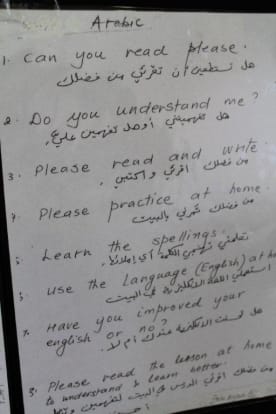 Arabic
1. Can you read please.
هل تستطيعين أن تقرئي من فضلك
2. Do you understand me?
هل تفهميني أو هل تفهمين علي
3. Please read and write
من فضلك اقرئي واكتبي.
Please practice at home.
من فضلك تمرني بالبيت
Learn the spellings.
use the Language (English) at
استعملي اللغة الانكليزية في البيت
7. Have you improved your
english or no?
هل تحسنت الانكليزية عندك أم لا.
8. Please read the lesson at home
to understand & learn better.
من فضلك اقرئي الدرس في البيت لتفهمين